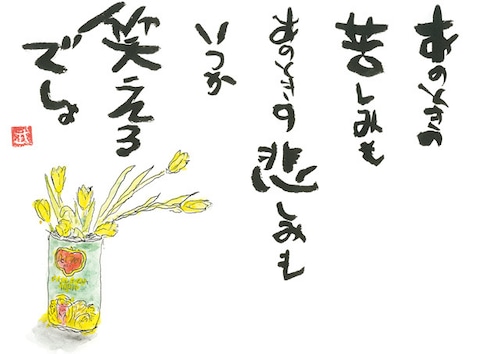 あのときの
苦しみも
あのときの
悲しみも
いつか
笑える
でしょ